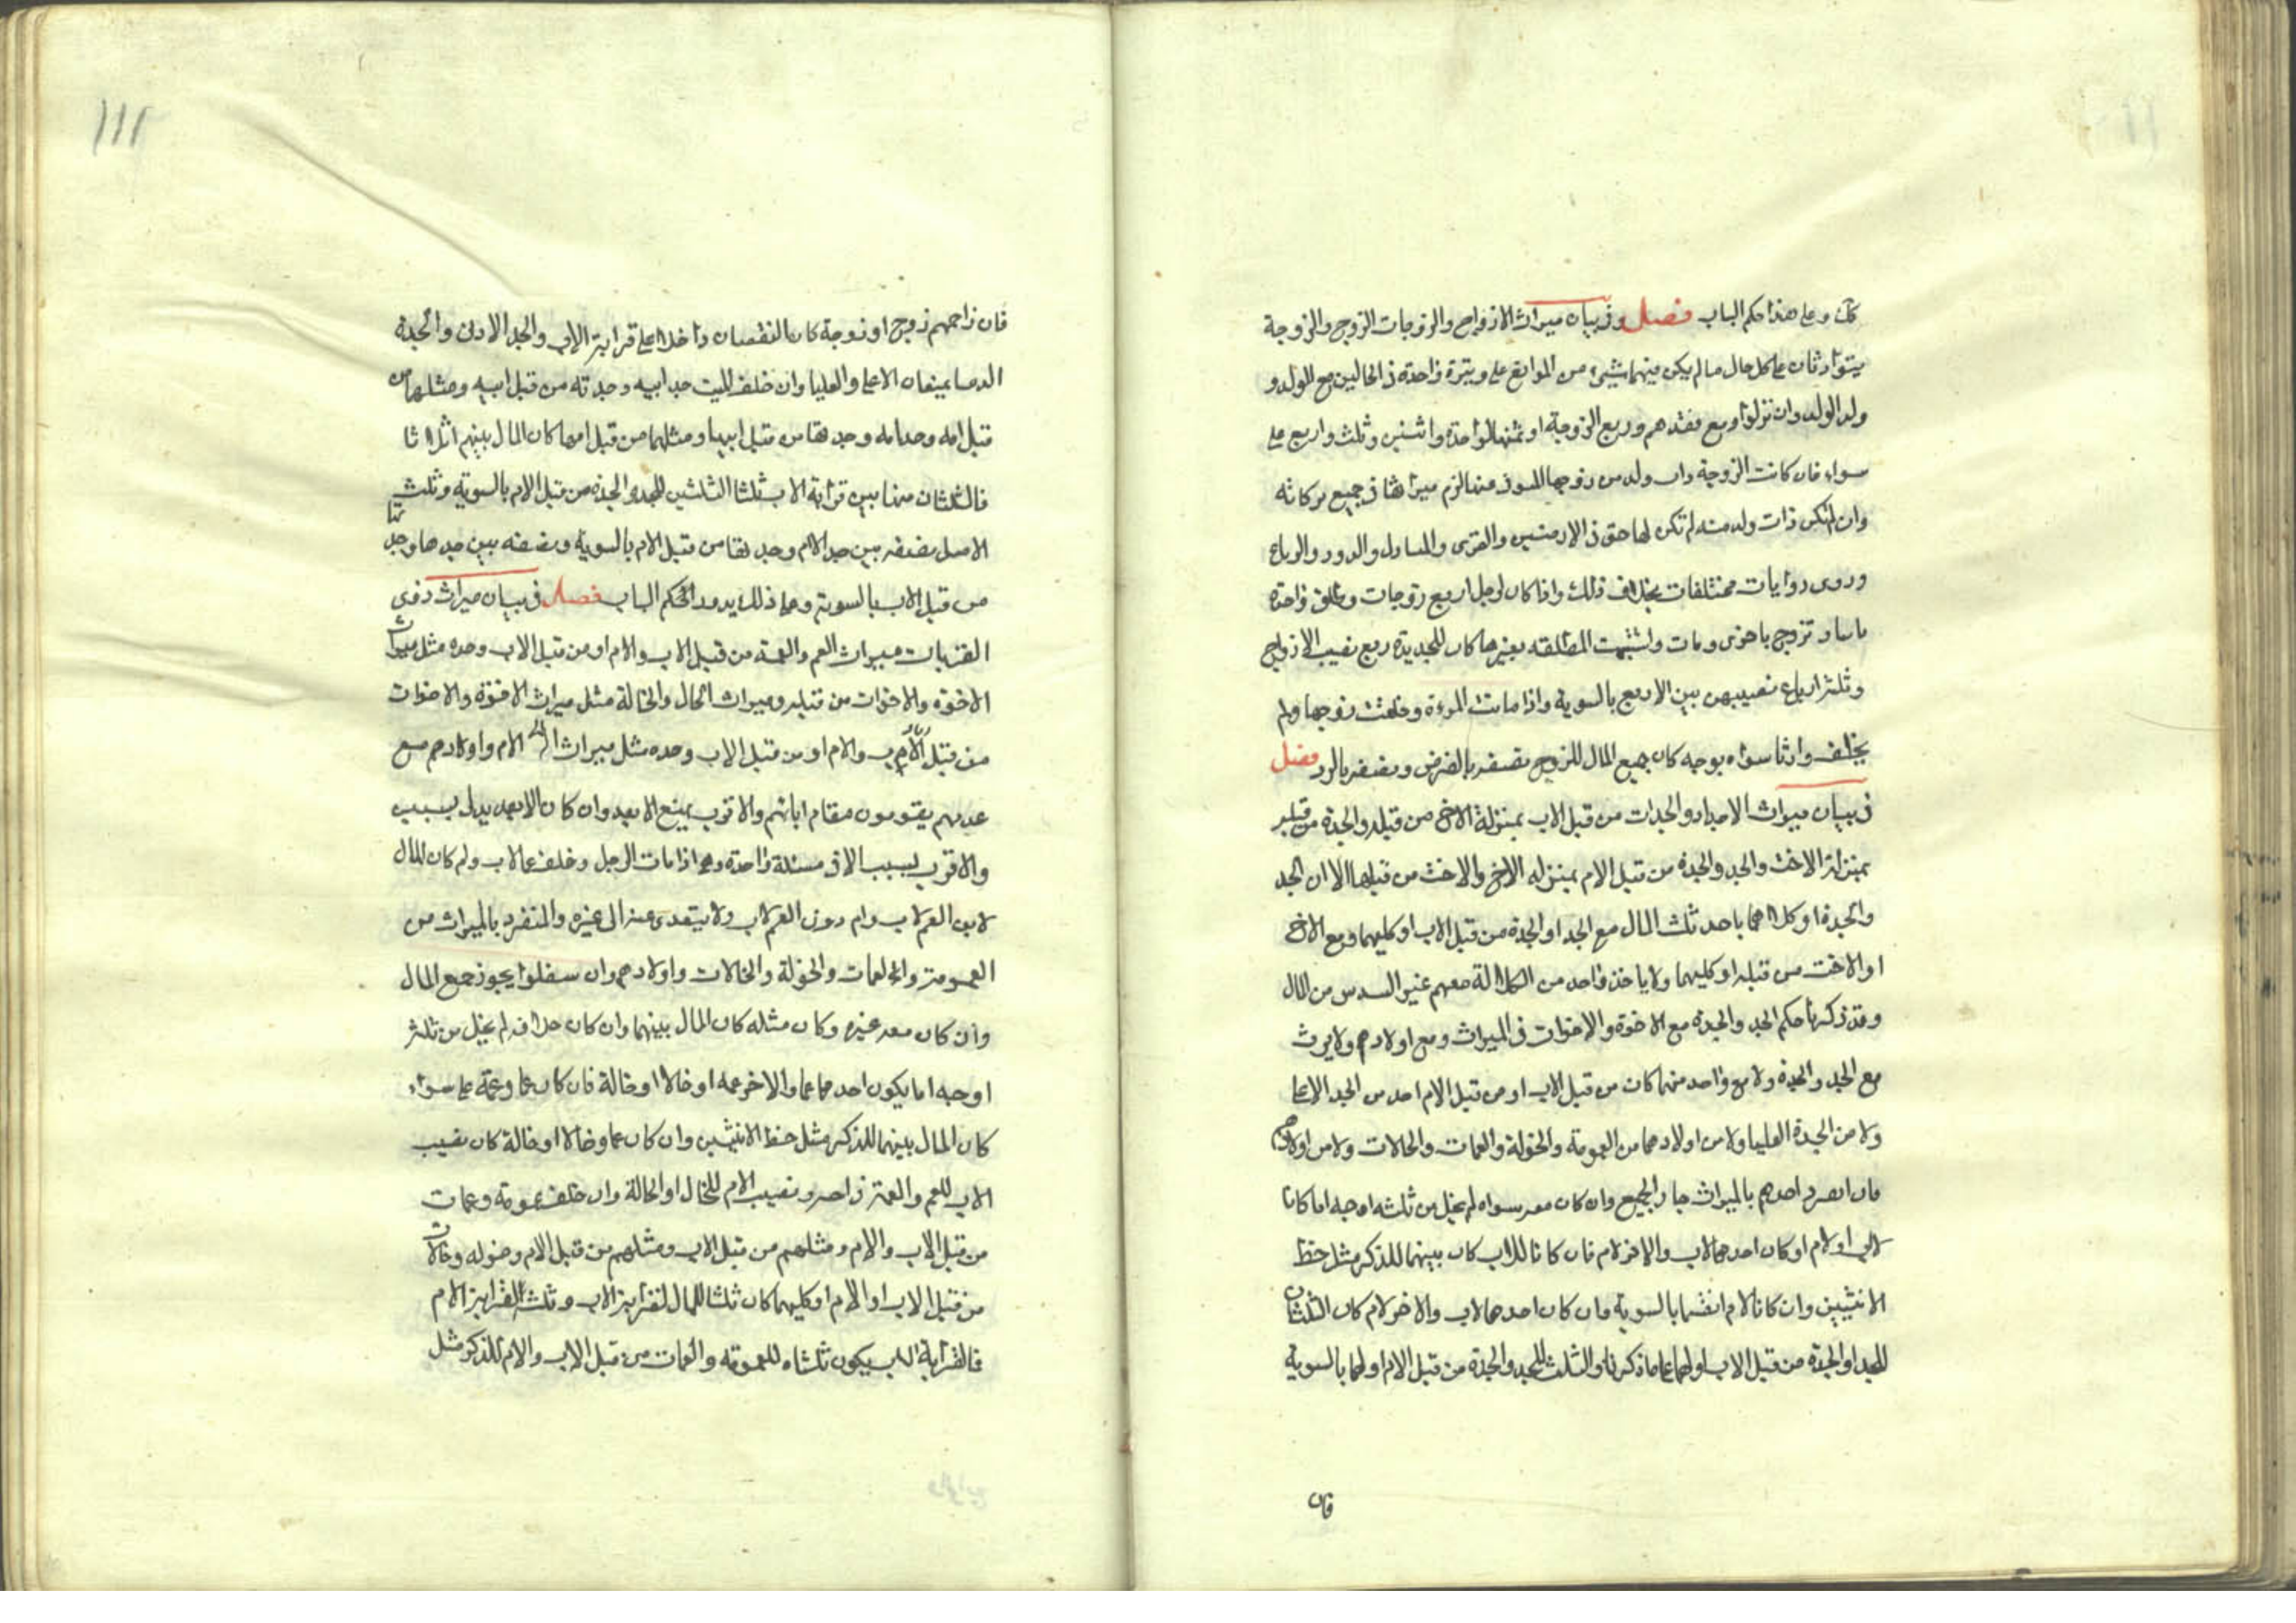 كان وعلى هذا حكم الباب فصل في بيان ميراث الازواج والزوجات الزوج والزوجة
يتوارثان على كل حال ما لم يكن بينهما شيئ من الموانع على وتيرة واحدة في الحالين مع الولد و
ولد الولد وان نزلوا ومع فقدهم وربع الزوجة او ثمنها لواحدة واثنين وثلث واربع على
سواء فان كانت الزوجة ذات ولد من زوجها المتوفى عنها لزم ميراثها في جميع تركاته
وان لم تكن ذات ولد منه لم تكن لها حق في الارضين والقرى والمنازل والدور والرباع
وروى روايات مختلفات بخلاف ذلك واذا كان لرجل اربع زوجات وطلق واحدة
وتزوج باخرى ومات واشتبهت المطلقه بغيرها كان للجديدة ربع نصيب الازواج
وثلثة ارباع نصيبهن بين الاربع بالسوية واذا ماتت المرءة وخلفت زوجها ولم
يخلف وارثا سواه بوجه كان جميع المال للزوج نصفه بالفرض ونصفه بالرد فصل
في بيان ميراث الاجداد والجدات من قبل الاب بمنزلة الاخ من قبله والجدة من قبله
بمنزلة الاخت والجد والجدة من قبل الام بمنزله الاخ والاخت من قبلها الا ان الجد
والجدة او كلاهما ياخذ ثلث المال مع الجد او الجدة من قبل الاب او كليهما ومع الاخ
او الاخت من قبله او كليهما ولا ياخذ واحد من الكلالة معهم غير السدس من المال
وقد ذكرنا حكم الجد والجدة مع الاخوة والاخوات في الميراث ومع اولادهم ولا يرث
مع الجد والجدة ولا مع واحد منهما كان من قبل الاب او من قبل الام احد من الجد الاعلى
ولا من الجدة العليا ولا من اولادهما من العمومة والخؤلة والعمات والخالات ولا من اولادهم
فان انفرد احدهم بالميراث حاز الجميع وان كان معه سواه لم يخل من ثلثه اوجه اما كانا
لاب او لام او كان احدهما لاب والاخر لام فان كانا للاب كان بينهما للذكر مثل حظ
الانثيين وان كانا لام اقتسما بالسوية وان كان احدهما لاب والاخر لام كان الثلثان
للجد او الجدة من قبل الاب او لهما على ما ذكرنا والثلث للجد والجدة من قبل الام او لهما بالسوية
فان
١١١
فان زاحمهم زوج او زوجة كان النقصان داخلا على قرابة الاب والجد الادنى والجدة
الدنيا يمنعان الاعلى والعليا وان خلف الميت جد ابيه وجدته من قبل ابيه ومثلهما من
قبل امه وجد امه وجدتها من قبل ابيها ومثلهما من قبل امها كان المال بينهم اثلاثا
فالثلثان منها بين قرابة الاب ثلثا الثلثين للجد والجدة من قبل الام بالسوية وثلث
الاصل نصفه بين جد الام وجدتها من قبل الام بالسوية ونصفه بين جدها وجدتها
من قبل الاب بالسوية وعلى ذلك يدور الحكم الباب فصل في بيان ميراث ذوى
القربات ميراث العم والعمة من قبل الاب والام او من قبل الاب وحده مثل ميراث
الاخوة والاخوات من قبله وميراث الخال والخالة مثل ميراث الاخوة والاخوات
من قبل الاب والام او من قبل الاب وحده مثل ميراث الام واولادهم مع
عدمهم يقومون مقام ابائهم والاقرب يمنع الابعد وان كان الابعد يدلى بسببين
والاقرب بسبب الا في مسئلة واحدة وهو اذا مات الرجل وخلف عما لاب ولم كان المال
لابن العم لاب وام دون العم لاب ولا يتعدى عنه الى غيره والمنفرد بالميراث من
العمومة والعمات والخؤلة والخالات واولادهم وان سفلوا يحوز جميع المال
وان كان معه غيره وكان مثله كان المال بينهما وان كان خلافه لم يخل من ثلثة
اوجه اما يكون احدهما عما والاخر عمه او خالا او خالة فان كان عما وعمة على سواء
كان المال بينهما للذكر مثل حظ الانثيين وان كان عما وخالا او خالة كان نصيب
الاب للعم والعمة ونصيب الام للخال او الخالة وان خلف عمومة وعمات
من قبل الاب والام ومثلهم من قبل الاب ومثلهم من قبل الام وخؤله وخالات
من قبل الاب او الام او كليهما كان ثلثا المال لقرابة الاب وثلثه لقرابة الام
فالقرابة الاب يكون ثلثاه للعمومة والعمات من قبل الاب والام للذكر مثل